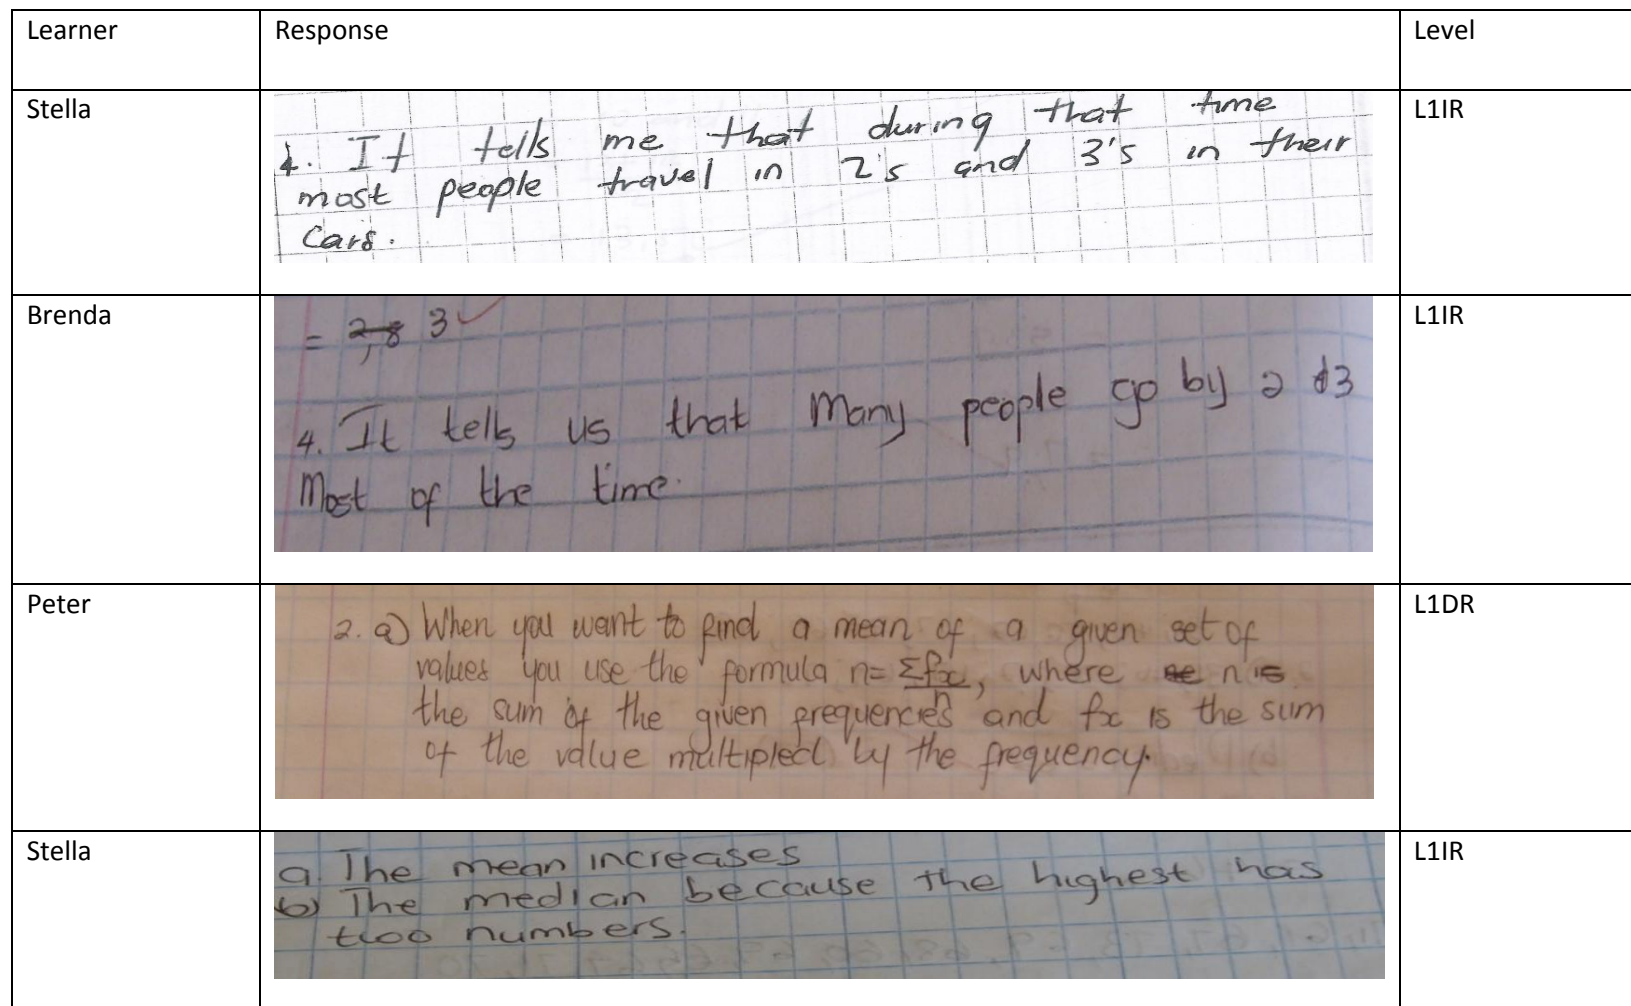 Learner Response Level
Stella L1IR
4. It tells me that during that time
most people travel in 2's and 3's in their
cars.
Brenda L1IR
= 2,8 3
4. It tells us that Many people go by 2 3
Most of the time.
Peter L1DR
2. a) When you want to find a mean of a given set of
values you use the formula n= Σfx/n, where n is
the sum of the given frequencies and fx is the sum
of the value multiplied by the frequency.
Stella L1IR
a The mean increases
b) The median because the highest has
two numbers.